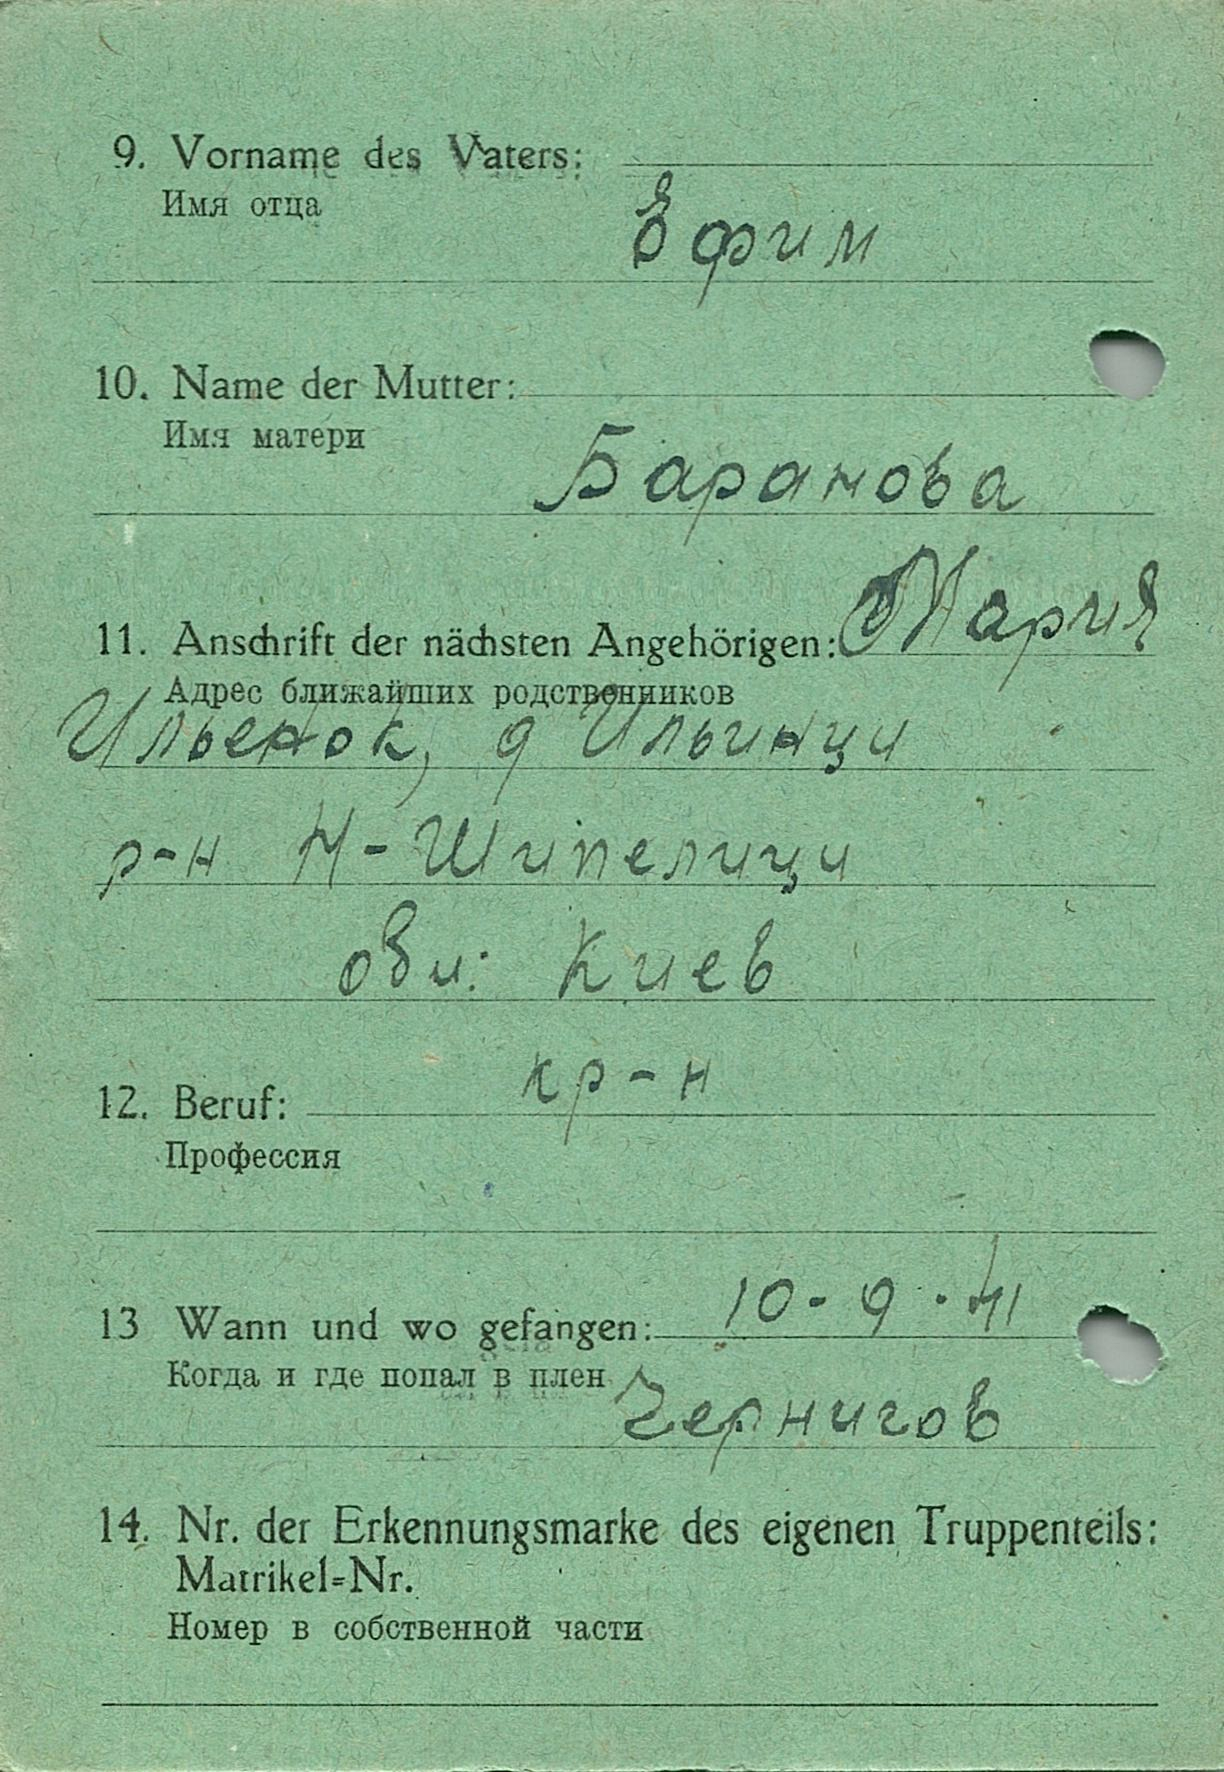 9. Vorname des Vaters:
Имя отца
Ефим
10. Name der Mutter:
Имя матери
Баранова
11. Anschrift der nächsten Angehörigen: Мария
Адрес ближайших родственников
Ильенок, д Ильинци
р-н Н-Шипелици
обл: Киев
12. Beruf: кр-н
Профессия
13 Wann und wo gefangen: 10-9·41
Когда и где попал в плен
Чернигов
14. Nr. der Erkennungsmarke des eigenen Truppenteils:
Matrikel=Nr.
Номер в собственной части